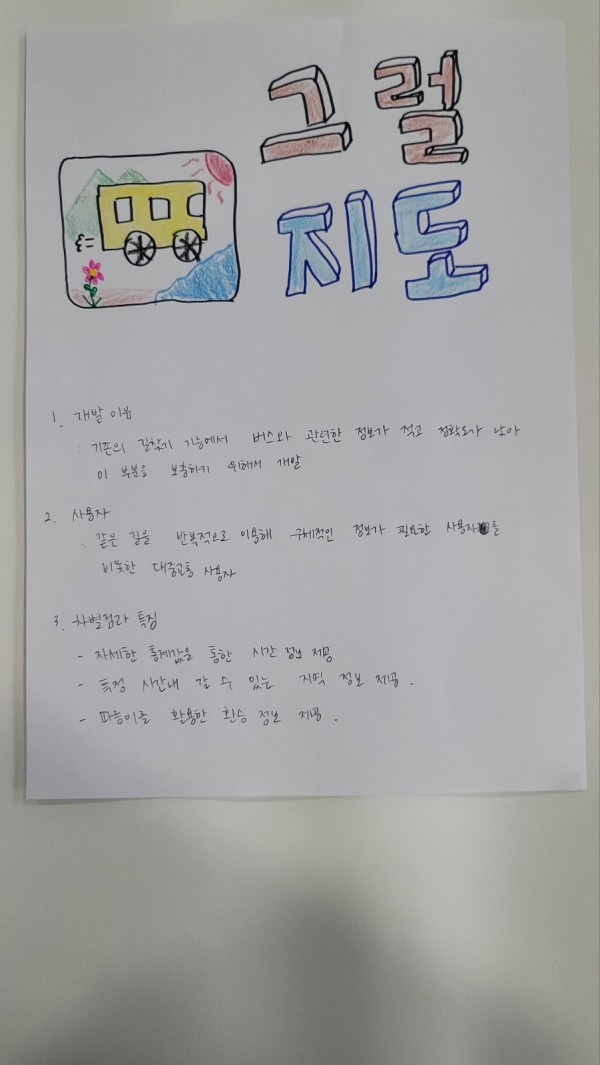 그럴
지도
1. 개발 이유
: 기존의 길찾기 기능에서 버스와 관련한 정보가 적고 정확도가 낮아
이 부분을 보충하기 위해서 개발
2. 사용자
: 같은 길을 반복적으로 이용해 구체적인 정보가 필요한 사용자를
비롯한 대중교통 사용자
3. 차별점과 특징
- 자세한 통계값을 통한 시간 정보 제공
- 특정 시간내 갈 수 있는 지픽 정보 제공.
- 따릉이를 활용한 환승 정보 제공.